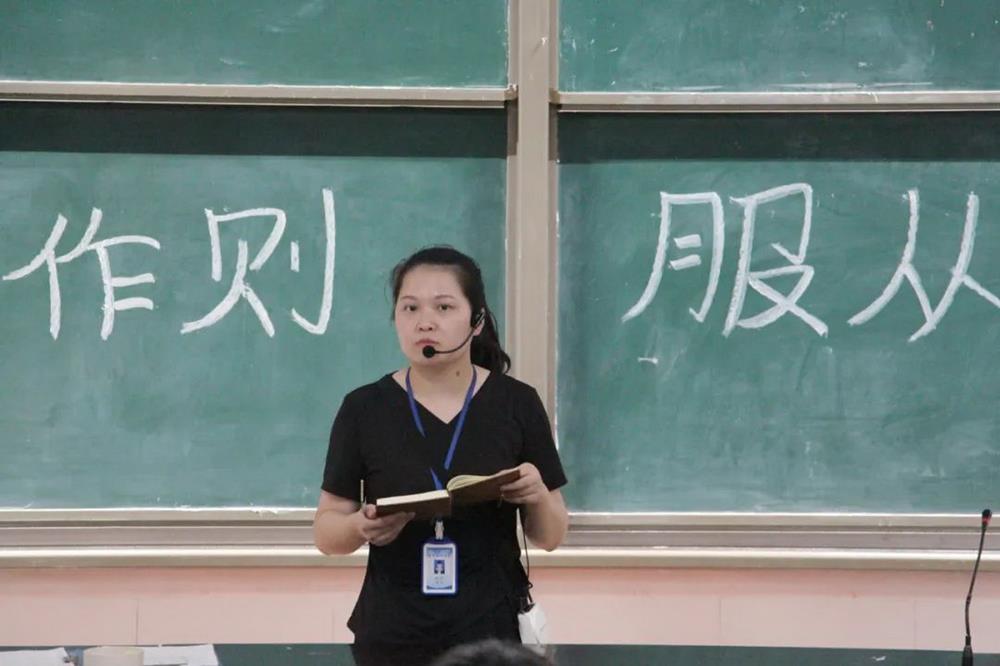 作则 服从